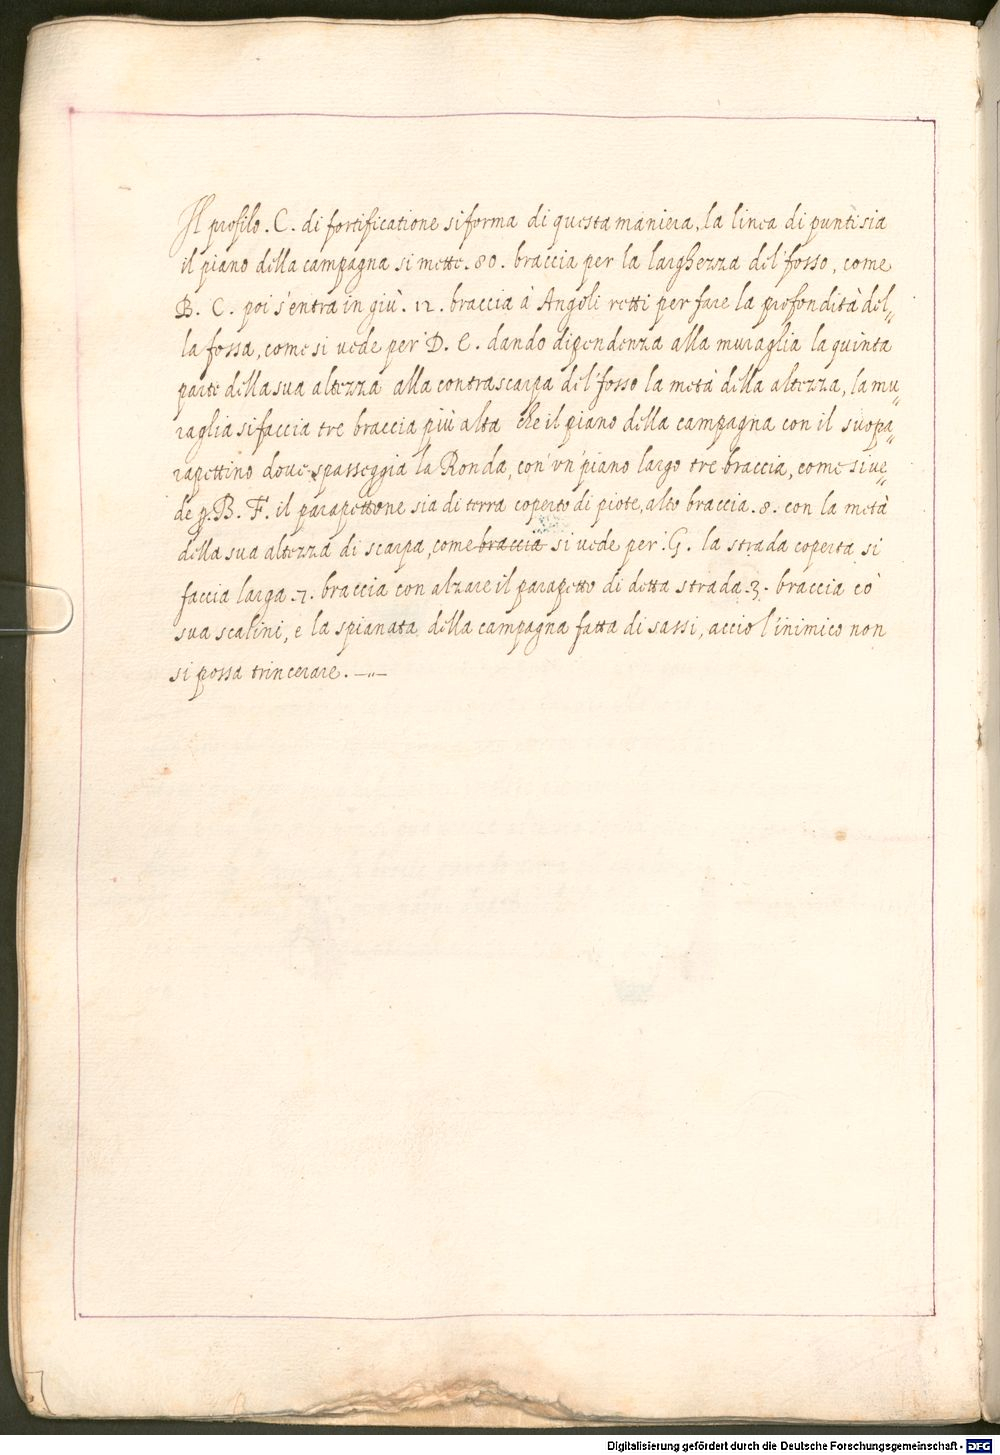 Il profilo . C . di fortificatione si forma di questa maniera, la linea di punti sia
il piano della campagna si mette . 80 . braccia per la larghezza del' fosso, come
B . C . poi s'entra in giù . 12 . braccia à Angoli retti per fare la profondità del„
la fossa, come si uede per D . E . dando dipendenza alla muraglia la quinta
parte della sua altezza alla contrascarpa del' fosso la metà della altezza, la mu„
raglia si faccia tre braccia più alta che il piano della campagna con il suo pa„
rapettino doue spasseggia la Ronda, con' vn' piano largo tre braccia, come si ue„
de p. B . F . il parapettone sia di terra coperto di piote, alto braccia . 8 . con la metà
della sua altezza di scarpa, come braccia si uede per . G . la strada coperta si
faccia larga . 7 . braccia con alzare il parapetto di detta strada . 3 . braccia cō
sua scalini, e la spianata della campagna fatta di sassi, acciò l'inimico non
si possa trincerare . —„—
Digitalisierung gefördert durch die Deutsche Forschungsgemeinschaft - DFG